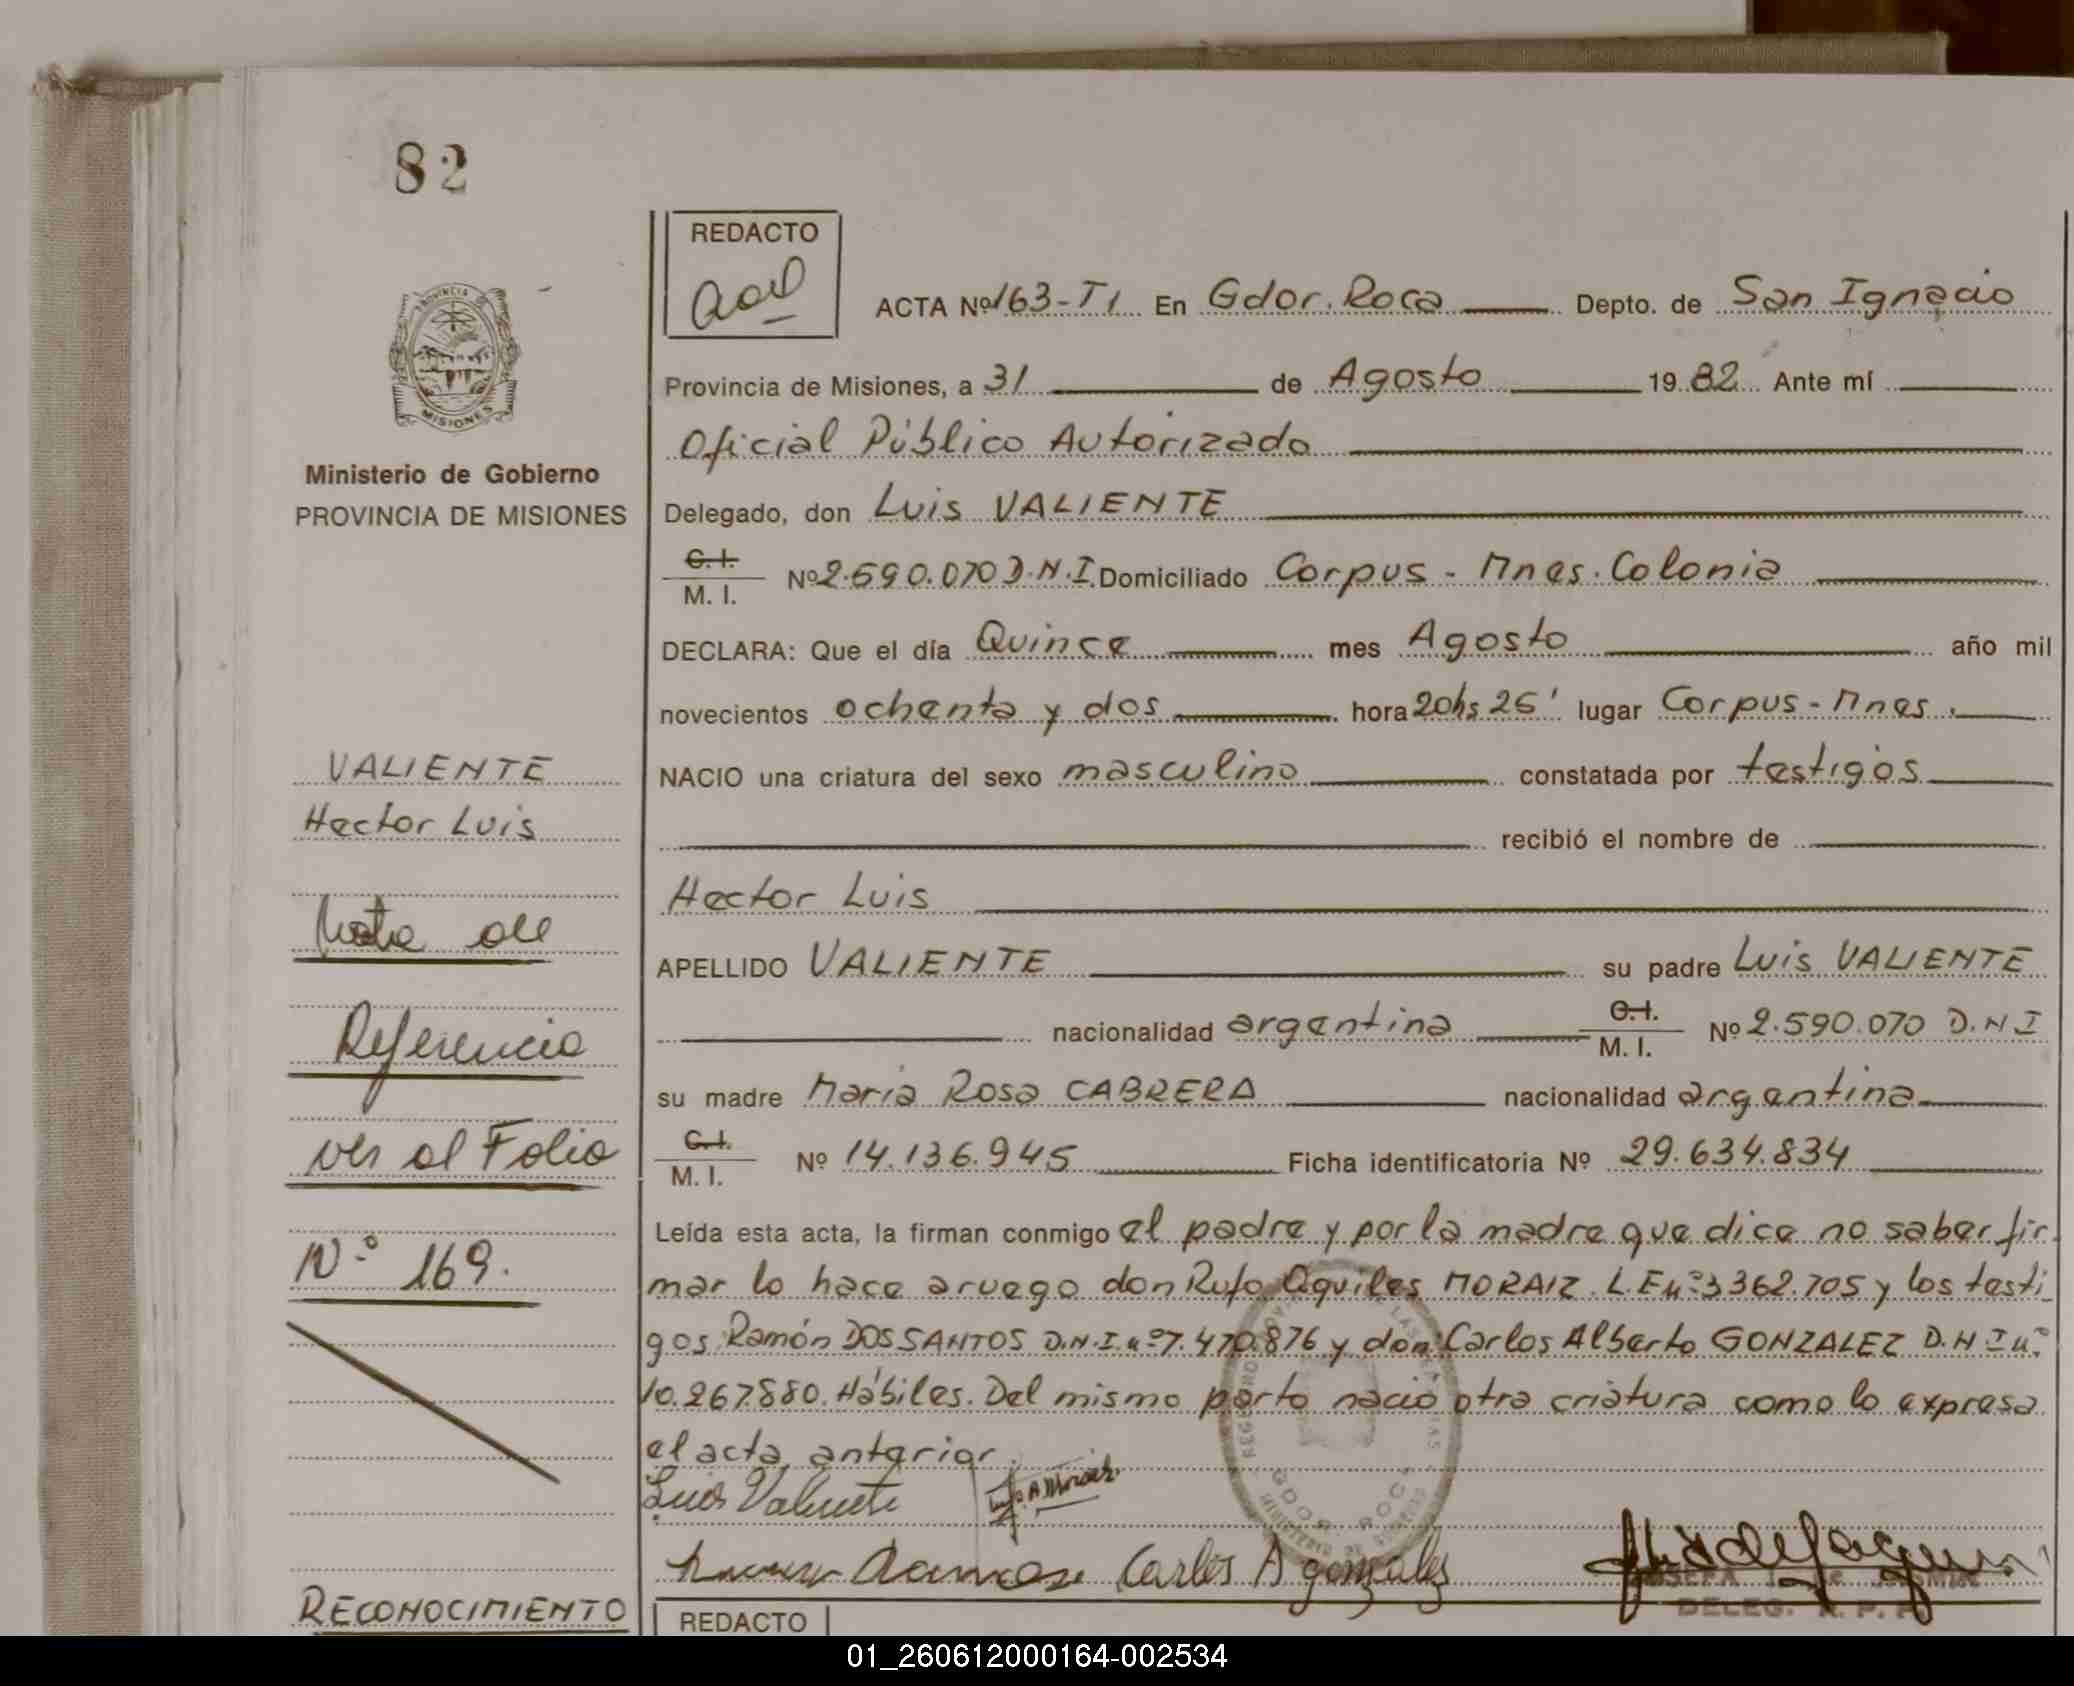 82
PROVINCIA DE
MISIONES
Ministerio de Gobierno
PROVINCIA DE MISIONES
VALIENTE
Hector Luis
Nota de
Referencia
ver al Folio
Nº 169.
RECONOCIMIENTO
REDACTO
ACTA Nº 163-T1 En Gdor. Roca Depto. de San Ignacio
Provincia de Misiones, a 31 de Agosto 1982 Ante mí
Oficial Público Autorizado
Delegado, don Luis VALIENTE
C.I.
M. I. Nº 2.590.070 D.N.I. Domiciliado Corpus - Mnes. Colonia
DECLARA: Que el día Quince mes Agosto año mil
novecientos ochenta y dos hora 20hs 25' lugar Corpus - Mnes.
NACIO una criatura del sexo masculino constatada por testigos
recibió el nombre de
Hector Luis
APELLIDO VALIENTE su padre Luis VALIENTE
nacionalidad argentina C.I. M. I. Nº 2.590.070 D.N I
su madre Maria Rosa CABRERA nacionalidad argentina
C.I.
M. I. Nº 14.136.945 Ficha identificatoria Nº 29.634.834
Leída esta acta, la firman conmigo el padre y por la madre que dice no saber fir-
mar lo hace a ruego don Rufo Aquiles MORAIZ. L.E nº 3362.705 y los testi-
gos: Ramón DOS SANTOS D.N.I. nº 7.470.876 y don: Carlos Alberto GONZALEZ D.N I nº
10.267.880. Hábiles. Del mismo parto nació otra criatura como lo expresa
el acta anterior.
Luis Valiente
Carlos A gonzalez
DELEG. R. P.
REDACTO
01_260612000164-002534